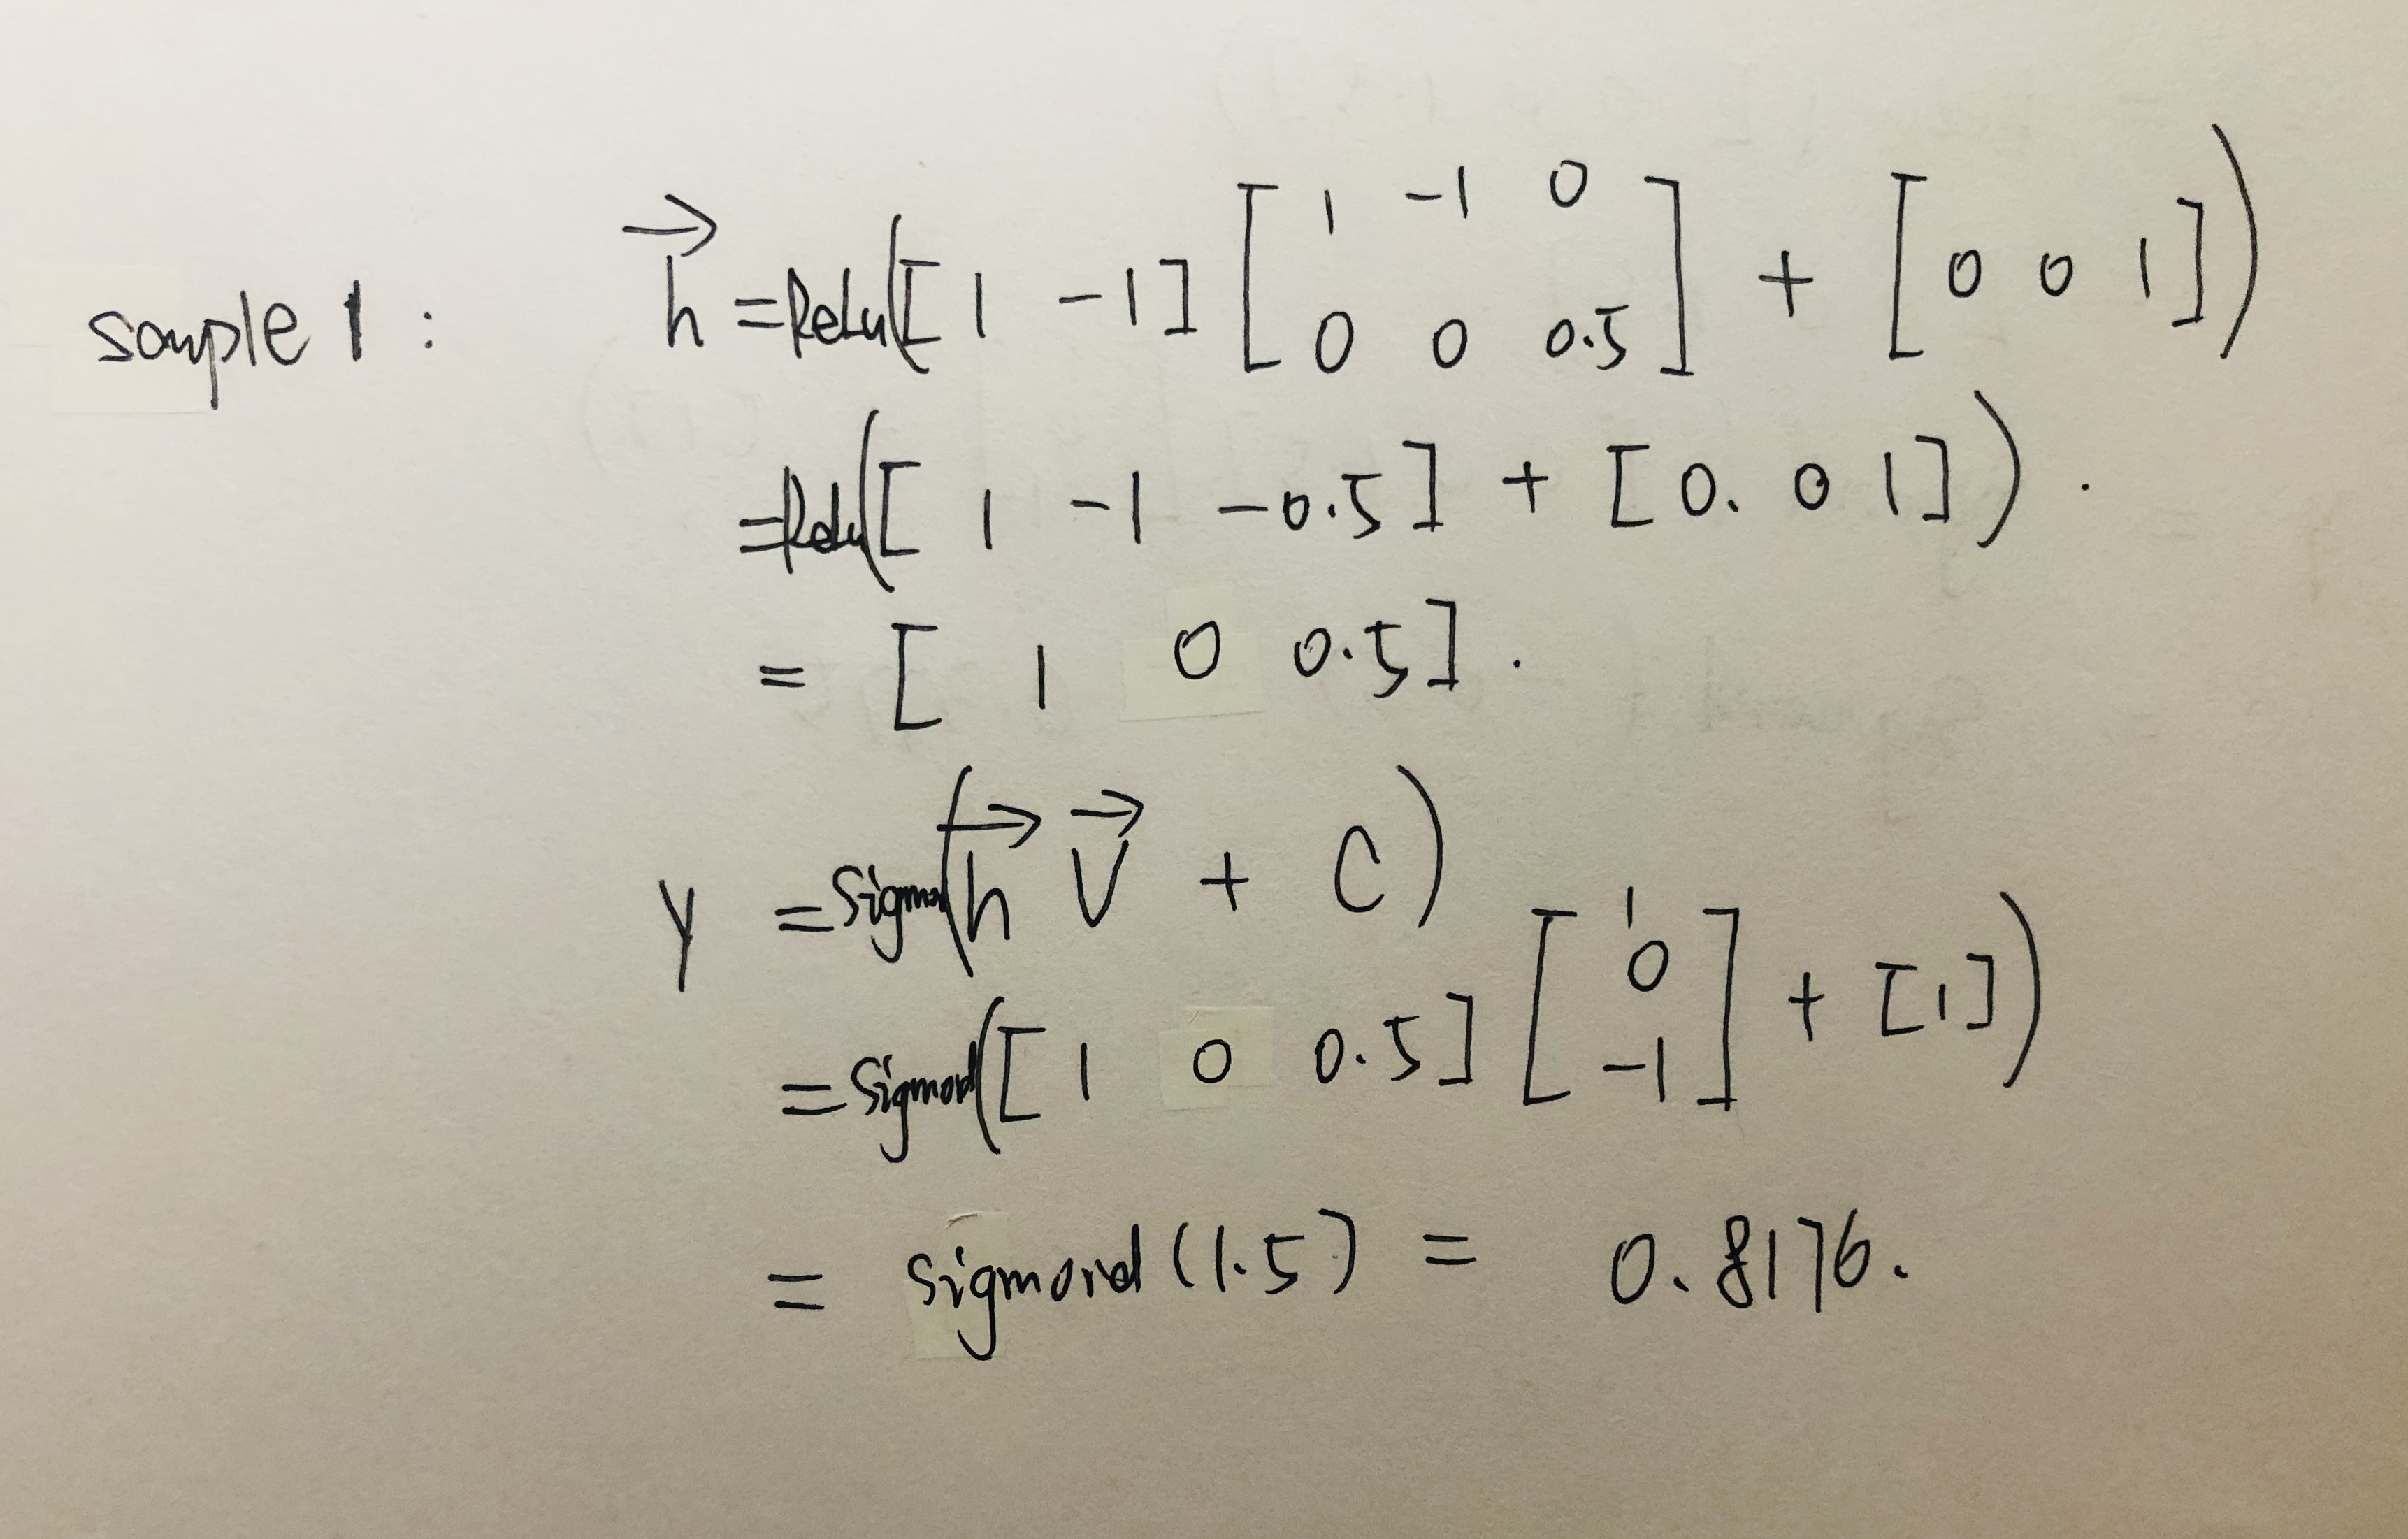 sample 1 : h = ReLu([ 1 -1 ] [ 1 -1 0
0 0 0.5 ] + [ 0 0 1 ])
= Relu([ 1 -1 -0.5 ] + [ 0. 0 1 ]) .
= [ 1 0 0.5 ] .
y = Sigmo(h V + C)
= Sigmod([ 1 0 0.5 ] [ 1
0
-1 ] + [ 1 ])
= sigmord (1.5) = 0.8176.